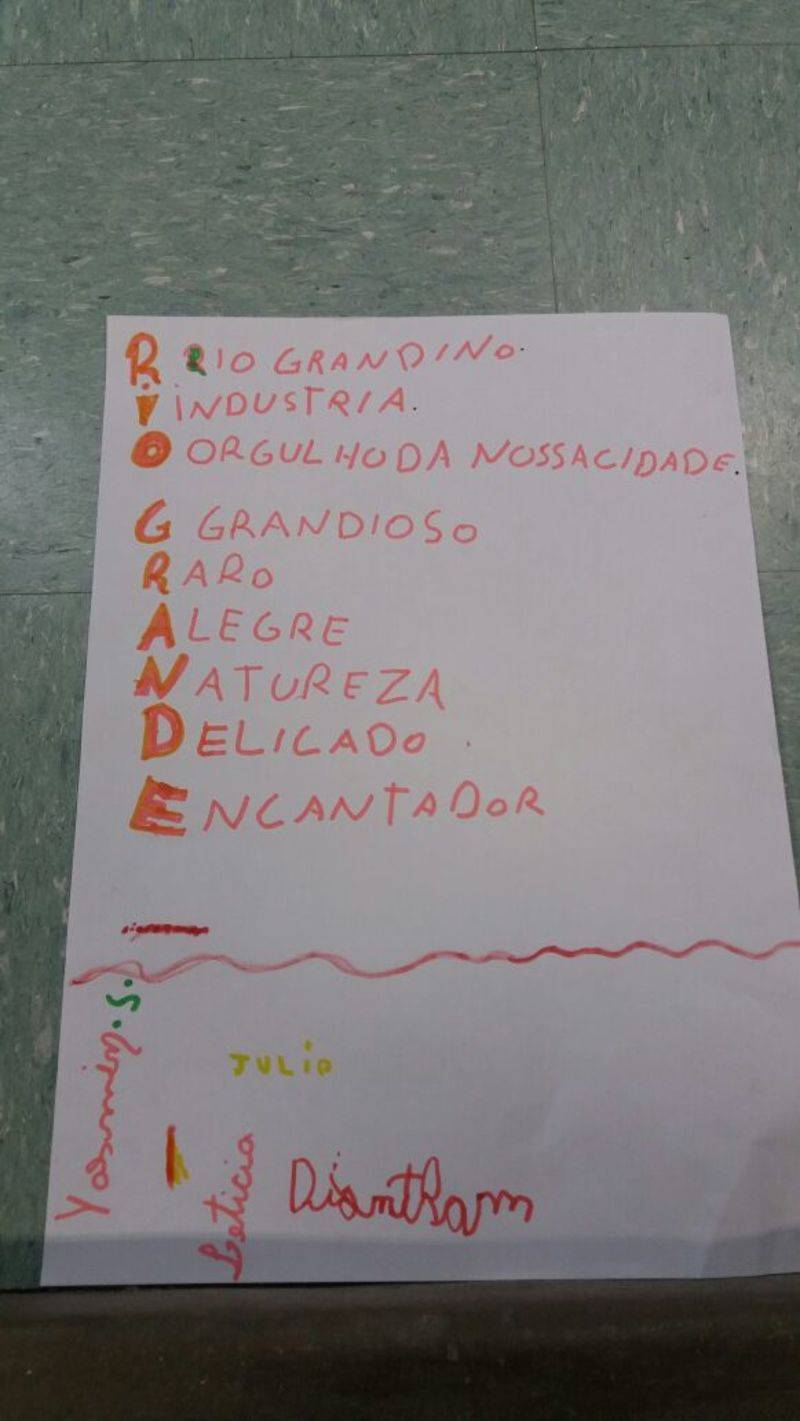 R RIO GRANDINO.
I INDUSTRIA.
O ORGULHO DA NOSSA CIDADE.
G GRANDIOSO
RARO
ALEGRE
NATUREZA
DELICADO.
ENCANTADOR
Yasmim. S.
JULIO
Leticia